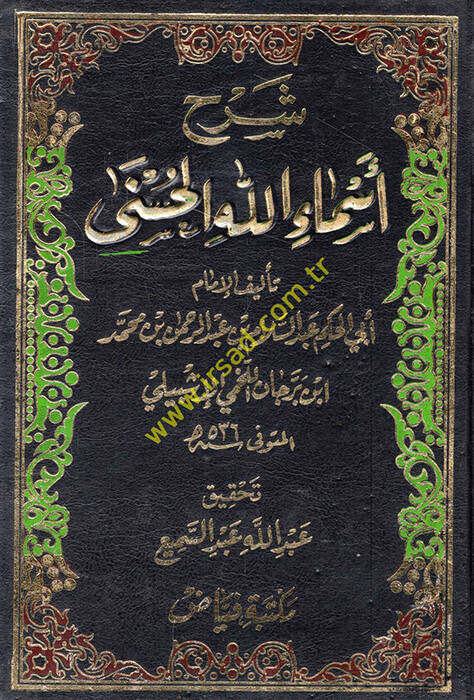 شرح
أسماء الله الحسنى
تأليف الإمام
أبي الحكم عبد السلام بن عبد الرحمن بن محمد
ابن برجان اللخمي الإشبيلي
المتوفى سنة ٥٣٦ هـ
تحقيق
عبد الله عبد السميع
مكتبة فياض
www.irsad.com.tr